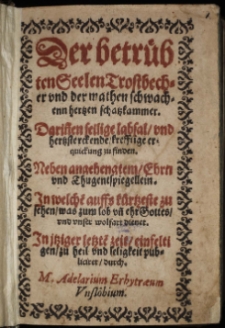 Der betrüb
ten Seelen Trostbech-
er vnd der mathen schwach-
enn hertzen schatzkammer.
Dariñen selige labsal / vnd
hertzsterckende / krefftige er-
quickung zu finden.
Neben angehengtem / Ehrn
vnd Thugentspiegellein.
In welchē auffs kürtzeste zu
sehen / was zum lob vñ ehr Gottes /
vnd vnser wolfart dienet.
In itziger letztē zeit / einfelti
gen / zu heil vnd seligkeit pub-
liciret / durch.
M. Adelarium Erhytraeum
Vuslobium.